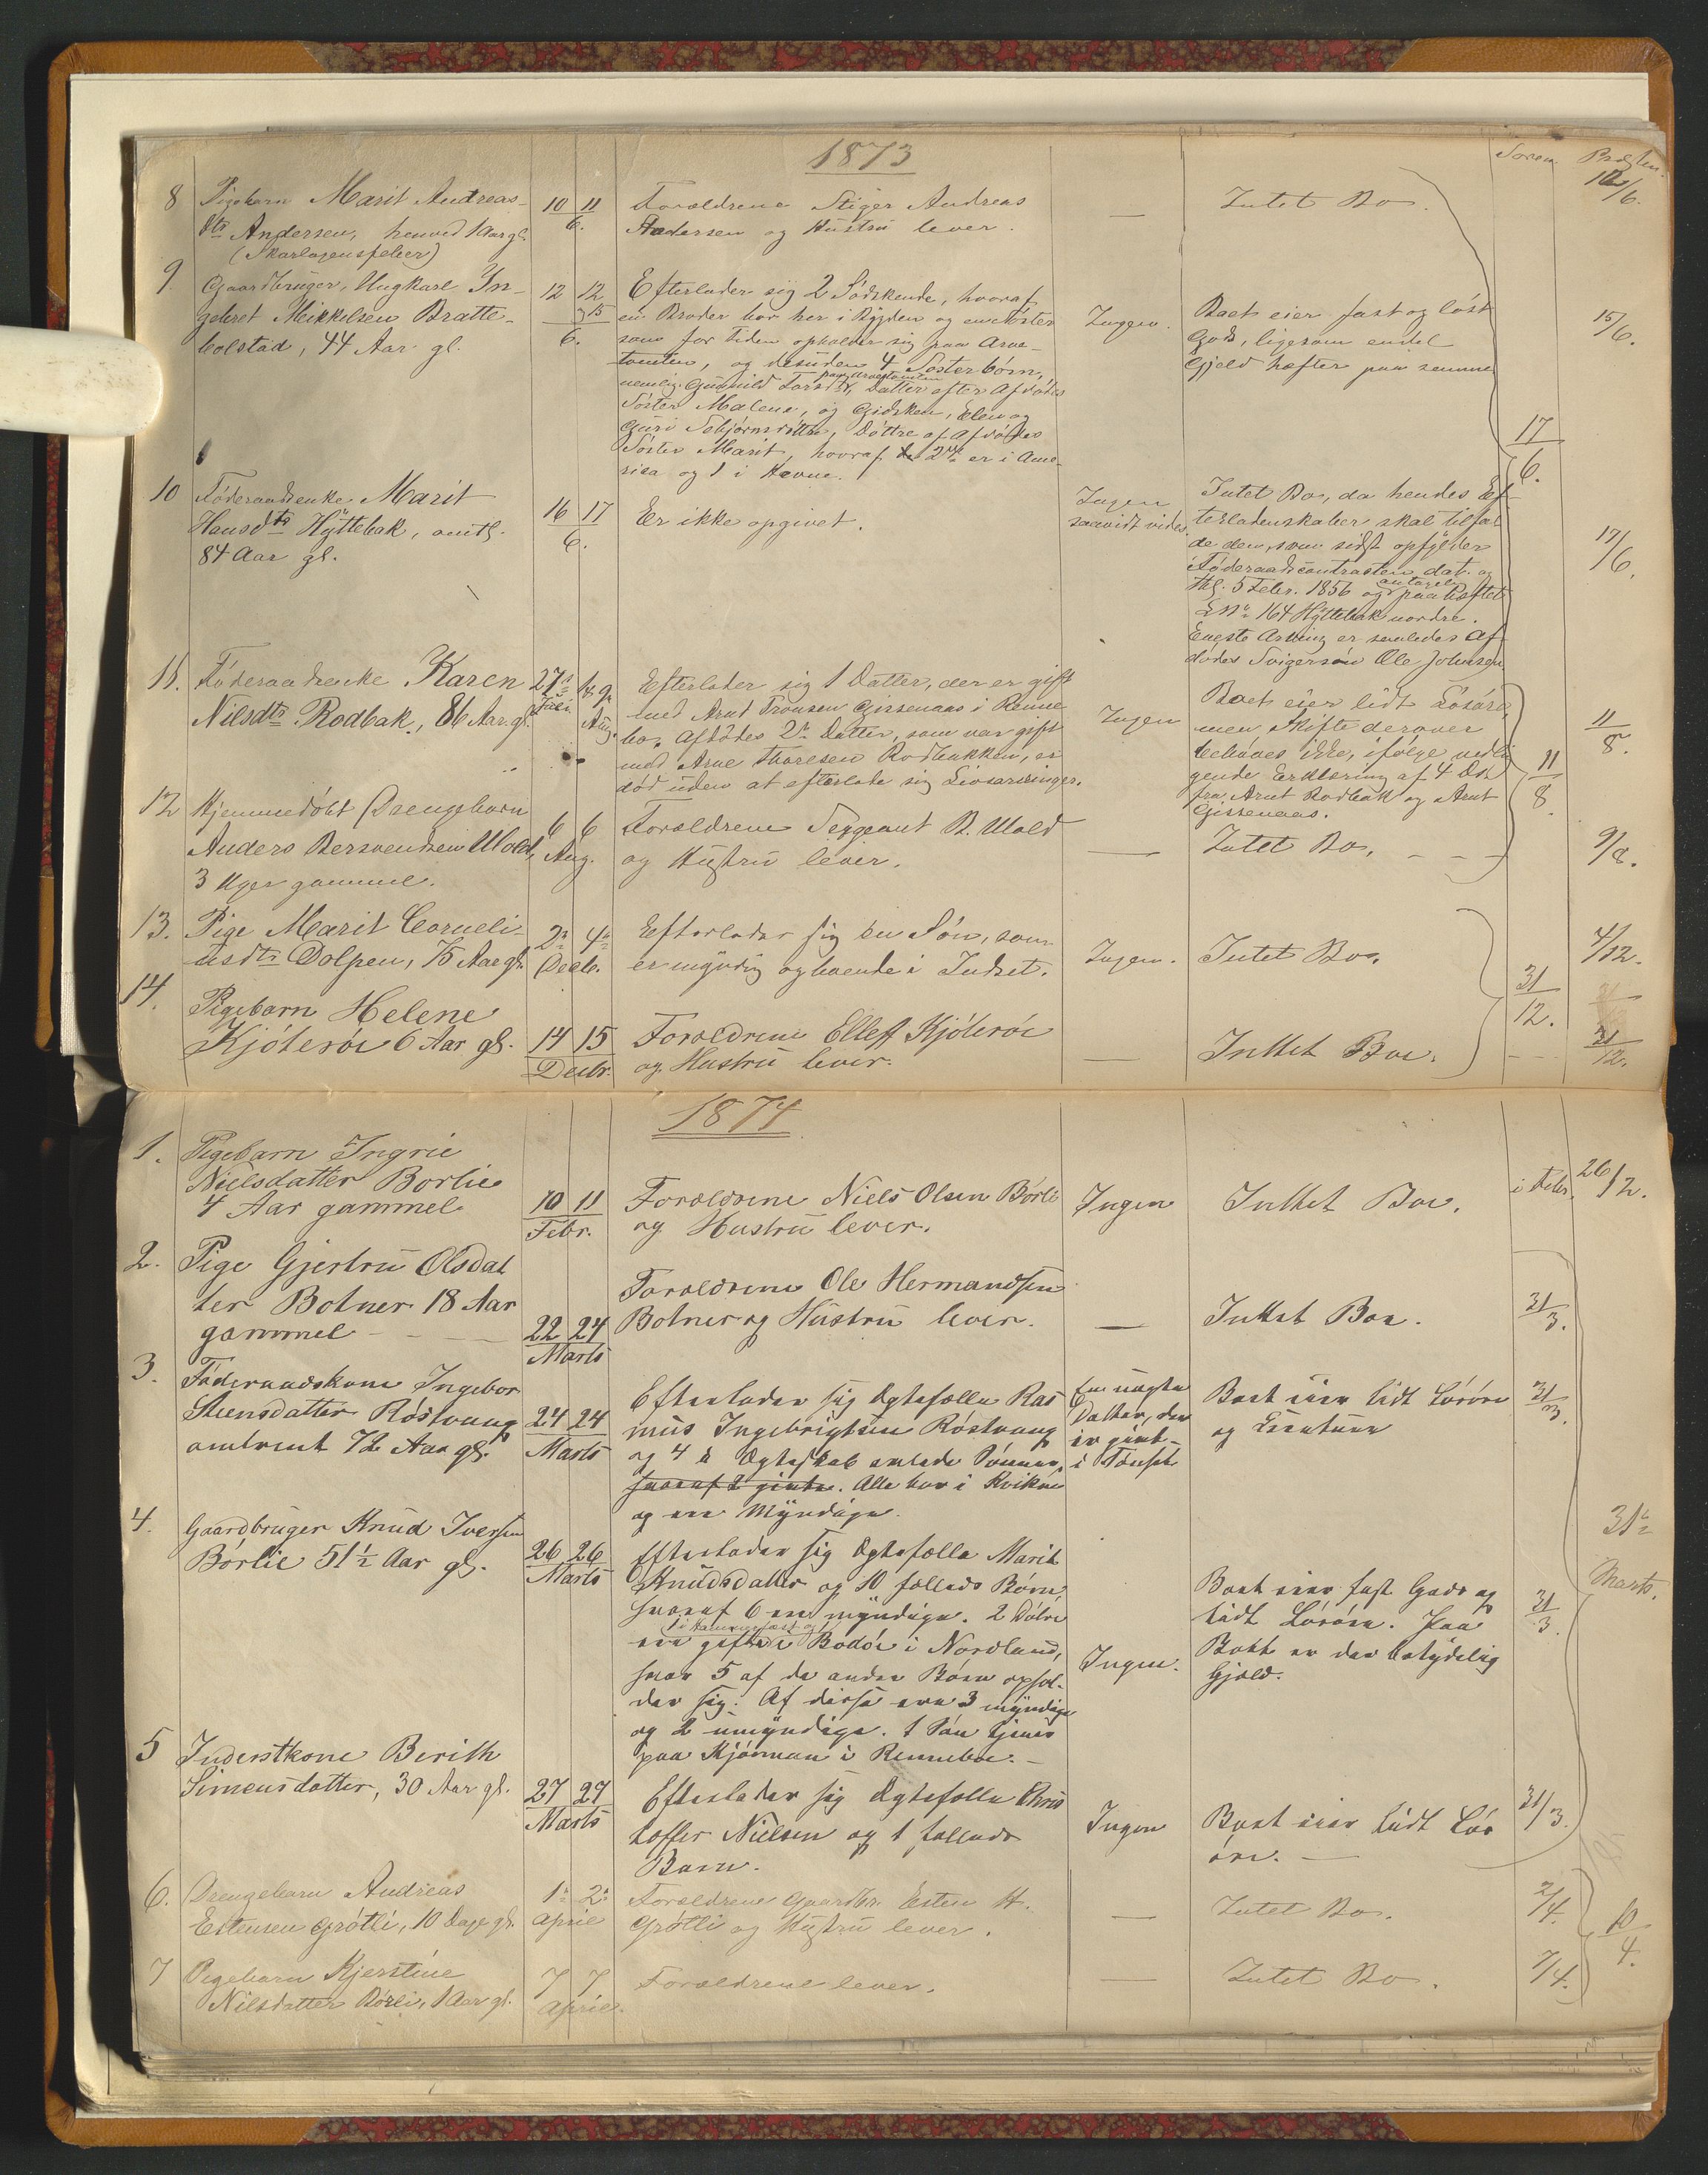 1873
Soren. Præsten.
8 Pigebarn Marit Andreas-
dtr Andersen, henved 1 Aar gl.
(Skarlagensfeber)
10 11
6.
Forældrene Stiger Andreas
Andersen og Hustru lever.
—
Intet Bo.
/6.
9. Gaardbruger, Ungkarl In-
gebret Mikkelsen Bratte-
bolstad, 44 Aar gl.
12 12
6.
Efterlader sig 2 Sødskende, hvoraf
en Broder bor her i Bygden og en Søster
som for Tiden opholder sig paa Arve-
tomten, og desuden 4 Søsterbørn,
nemlig Gunnild Larsdtr, paa Arvetomten Datter efter Afdødes
Søster Malene, og Gidsken, Elen og
Guri Esbjørnsdøttre, Døttre af Afdødes
Søster Marit, hvoraf de 2de er i Ame-
rica og 1 i Hevne.
Ingen.
Boet eier fast og løst
Gods, ligesom endel
Gjeld hæfter paa samme
17
6.
15/6.
10 Føderaadsenke Marit
Hansdtr Hyttebak, omtr.
84 Aar gl.
16 17
6.
Er ikke opgivet.
Ingen
saavidt vides.
Intet Bo, da hendes Ef-
terladenskaber skal tilfal-
de den, som sidst opfylder
Føderaadscontracten dat. og
thgl. 5 Febr. 1856 og paaheftet
LNo 164 Hyttebak nordre.
Eneste Arving er saaledes Af-
dødes Svigersøn Ole Johnsen
17/6.
11. Føderaadsenke Karen
Nilsdtr Rodbak, 86 Aar gl.
27de
Juli
Aug.
Efterlader sig 1 Datter, der er gift
med Arnt Tronsen Gissenaas i Renne-
bo. Afdødes 2den Datter, som var gift
med Arne Thoresen Rodbakken, er
død uden at efterlade sig Livsarvinger.
Ingen
Boet eier lidt Løsøre,
men Skifte derover
behøves ikke, ifølge vedlig-
gende Erklæring af 4 ds
fra Arnt Rodbak og Arnt
Gissenaas.
11
8.
11
8.
12 Hjemmedøbt Drengebarn
Anders Bersvendsen Wold,
3 Uger gammel.
6 6
Aug.
Forældrene Sergeant B. Wold
og Hustru lever.
—
Intet Bo. - - -
9/8.
13. Pige Marit Corneli-
usdtr Dolpen, 75 Aar gl.
2n 4n
Decb.
Efterlader sig en Søn, som
er myndig og boende i Indset.
Ingen.
Intet Bo.
31
12.
4/12.
14. Pigebarn Helene
Kjöterøe 6 Aar gl.
14 15
Decbr.
Forældrene Ellef Kjöterøe
og Hustru lever.
—
Inttet Boe.
31
12.
1874
1. Pigebarn Ingrie
Nielsdatter Borlie
4 Aar gammel
10 11
Febr.
Forældrene Niels Olsen Börli
og Hustru lever.
Ingen
Inttet Boe.
i Febr.
26/2.
2. Pige Gjertru Olsdat
ter Botner 18 Aar
gammel - - -
22 24
Marts
Forældrene Ole Hermandsen
Botner og Hustru lever.
—
Inttet Boe.
31
3.
3. Föderaadskone Ingebor
Steensdatter Röstvang
omtrent 72 Aar gl.
24 24
Marts
Efterlader sig Ægtefælle Ras
mus Ingebrigtsen Röstvang
og 4 i Ægteskab avlede Sönner,
hvoraf 2 givte. Alle bor i Kvikne
og ere Myndige.
Een uægte
Datter, der
er givt
i Tönset
Boet eier lidt Lösöre
og Creaturer
31
3.
4. Gaardbruger Knud Iversen
Börlie 51½ Aar gl.
26 26
Marts
Efterlader sig Ægtefælle Marit
Knudsdatter og 10 fælleds Börn
hvoraf 6 ere myndige. 2 Dötre
ere gifte 1 i Hammerfest og i Bodöe i Nordland,
hvor 5 af de andre Börn ophol-
der sig. Af disse ere 3 myndige
og 2 umyndige. 1 Sön tjener
paa Stjörnan i Renneboe. -
Ingen.
Boet eier fast Gods og
lidt Lösöre. Paa
Boet er der betydelig
Gjæld.
31
3.
31te
Marts.
5 Inderstkone Berith
Simensdatter, 30 Aar gl.
27 27
Marts
Efterlader sig Ægtefælle Chris
toffer Nielsen og 1 fælleds
Barn.
Ingen
Boet eier lidt Lös
öre. —
31/3.
6. Drengebarn Andreas
Estensen Grøtli, 10 Dage gl.
1n 2n
April
Forældrene Gaardbr. Esten H.
Grøtli og Hustru lever.
—
Intet Bo.
2/4.
10
4.
7 Pigebarn Kjerstine
Nilsdatter Börli, 1 Aar gl.
7 7
April.
Forældrene lever.
—
Intet Bo.
7/4.